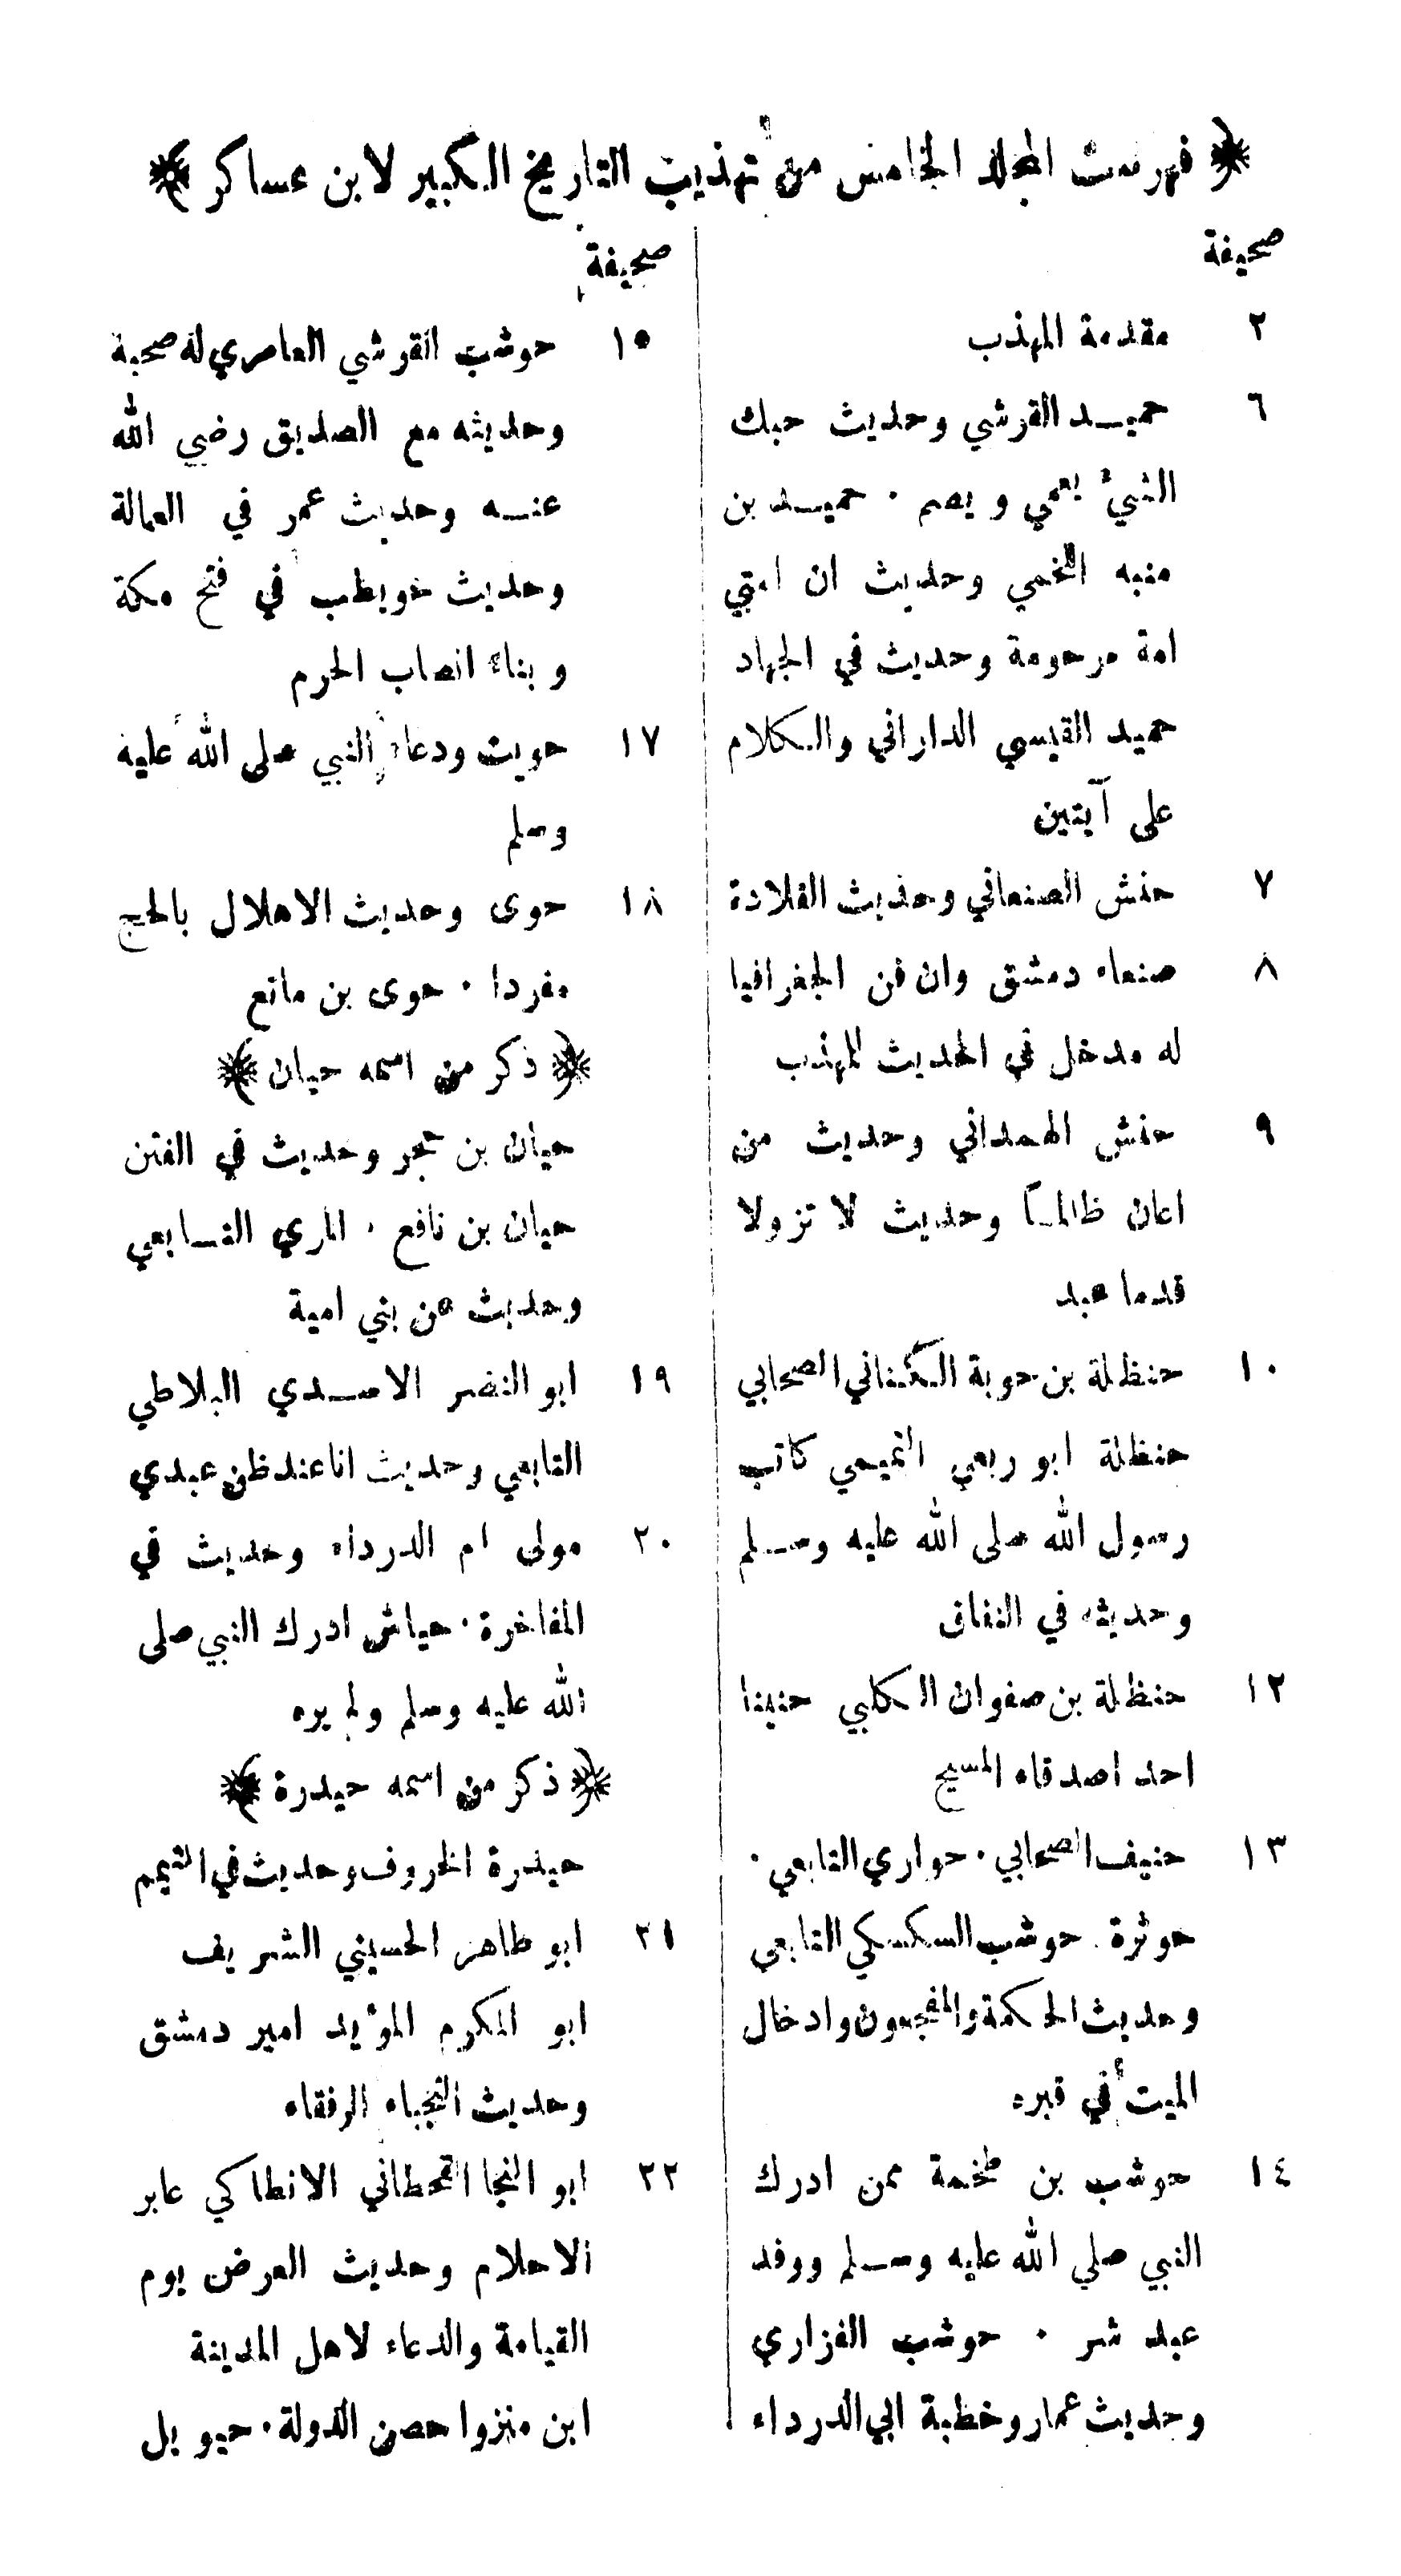 ﴿ فهرست المجلد الخامس من تهذيب التاريخ الكبير لابن عساكر ﴾
صحيفة
٢ مقدمة المهذب
٦ حميد القرشي وحديث حبك
الشيء يعمي ويصم . حميد بن
منبه اللخمي وحديث ان امتي
امة مرحومة وحديث في الجهاد
حميد القيسي الداراني والكلام
على آيتين
٧ حنش الصنعاني وحديث القلادة
٨ صنعاء دمشق وان فن الجغرافيا
له مدخل في الحديث للمهذب
٩ حنش الهمداني وحديث من
اعان ظالما وحديث لا تزولا
قدما عبد
١٠ حنظلة بن حوية الكناني الصحابي
حنظلة ابو ربعي التميمي كاتب
رسول الله صلى الله عليه وسلم
وحديثه في النفاق
١٢ حنظلة بن صفوان الكلبي حنينا
احد اصدقاء المسيح
١٣ حنيف الصحابي . حواري التابعي .
حوثرة . حوشب السكسكي التابعي
وحديث الحكمة والمفجعون وادخال
الميت في قبره
١٤ حوشب بن طخمة ممن ادرك
النبي صلي الله عليه وسلم ووفد
عبد شر . حوشب الفزاري
وحديث عمار وخطبة ابي الدرداء
صحيفة
١٥ حوشب القرشي العامري له صحبة
وحديثه مع الصديق رضي الله
عنه وحديث عمر في العمالة
وحديث حويطب في فتح مكة
وبناء انصاب الحرم
١٧ حويت ودعاء النبي صلى الله عليه
وسلم
١٨ حوى وحديث الاهلال بالحج
مفردا . حوى بن مانع
﴿ ذكر من اسمه حيان ﴾
حيان بن حجر وحديث في الفتن
حيان بن نافع . المري التابعي
وحديث عن بني امية
١٩ ابو النضر الاسدي البلاطي
التابعي وحديث انا عند ظن عبدي
٢٠ مولى ام الدرداء وحديث في
المفاخرة . حياش ادرك النبي صلى
الله عليه وسلم ولم يره
﴿ ذكر من اسمه حيدرة ﴾
حيدرة الخروف وحديث في التيمم
٢١ ابو طاهر الحسيني الشريف
ابو المكرم المؤيد امير دمشق
وحديث النجباء الرفقاء
٢٢ ابو النجا القحطاني الانطاكي عابر
الاحلام وحديث العرض يوم
القيامة والدعاء لاهل المدينة
ابن منزوا حصن الدولة . حيويل